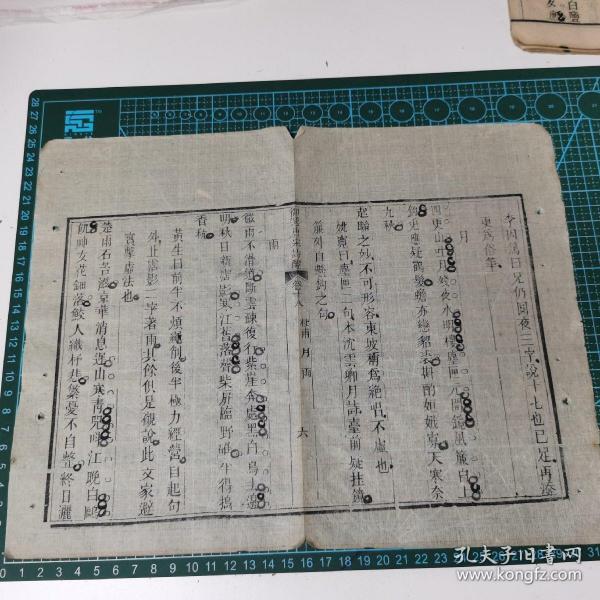 李因篤曰只仍圓夜二字說十七也已足再奏
更爲俗筆
月
四更山吐月殘夜水明樓塵匣元開鏡風簾自上
鉤兔應疑鶴髮蟾亦戀貂裘斟酌姮娥寡天寒奈
九秋
起聯之外不可形容東坡稱爲絶唱不虛也
姚察曰塵匣二句本沈雲卿月詩臺前疑挂鏡
簾外自懸鈎之句
御選唐宋詩醇 卷十八 杜甫 月 雨 六
雨
微雨不滑道斷雲疎復行紫崖奔處黑白鳥去邊
明秋日新霑影寒江舊落聲柴扉臨野碓半得擣
香秔
黃生曰前半不煩繩削後半極力經營自起句
外止霑影二字著雨其餘俱是襯說此文家避
實擊虛法也
楚雨石苔滋京華消息遲山寒青兕叫江晚白鷗
飢神女花鈿落鮫人織杼悲繁憂不自整終日灑
孔夫子旧书网
www.kongfz.com